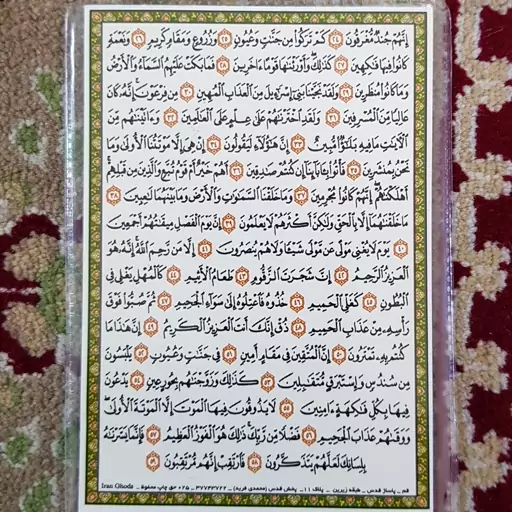 إِنَّهُمْ جُندٌ مُّغْرَقُونَ ﴿٢٤﴾ كَمْ تَرَكُوا مِن جَنَّٰتٍ وَعُيُونٍ ﴿٢٥﴾ وَزُرُوعٍ وَمَقَامٍ كَرِيمٍ ﴿٢٦﴾ وَنَعْمَةٍ
كَانُوا فِيهَا فَٰكِهِينَ ﴿٢٧﴾ كَذَٰلِكَ وَأَوْرَثْنَٰهَا قَوْمًا ءَاخَرِينَ ﴿٢٨﴾ فَمَا بَكَتْ عَلَيْهِمُ السَّمَاءُ وَالْأَرْضُ
وَمَا كَانُوا مُنظَرِينَ ﴿٢٩﴾ وَلَقَدْ نَجَّيْنَا بَنِي إِسْرَٰءِيلَ مِنَ الْعَذَابِ الْمُهِينِ ﴿٣٠﴾ مِن فِرْعَوْنَ إِنَّهُ كَانَ
عَالِيًا مِّنَ الْمُسْرِفِينَ ﴿٣١﴾ وَلَقَدِ اخْتَرْنَٰهُمْ عَلَىٰ عِلْمٍ عَلَى الْعَٰلَمِينَ ﴿٣٢﴾ وَءَاتَيْنَٰهُم مِّنَ
الْءَايَٰتِ مَا فِيهِ بَلَٰٓؤٌا مُّبِينٌ ﴿٣٣﴾ إِنَّ هَٰؤُلَاءِ لَيَقُولُونَ ﴿٣٤﴾ إِنْ هِيَ إِلَّا مَوْتَتُنَا الْأُولَىٰ وَمَا
نَحْنُ بِمُنشَرِينَ ﴿٣٥﴾ فَأْتُوا بِـَٔابَائِنَا إِن كُنتُمْ صَٰدِقِينَ ﴿٣٦﴾ أَهُمْ خَيْرٌ أَمْ قَوْمُ تُبَّعٍ وَالَّذِينَ مِن قَبْلِهِمْ
أَهْلَكْنَٰهُمْ إِنَّهُمْ كَانُوا مُجْرِمِينَ ﴿٣٧﴾ وَمَا خَلَقْنَا السَّمَٰوَٰتِ وَالْأَرْضَ وَمَا بَيْنَهُمَا لَٰعِبِينَ ﴿٣٨﴾
مَا خَلَقْنَٰهُمَا إِلَّا بِالْحَقِّ وَلَٰكِنَّ أَكْثَرَهُمْ لَا يَعْلَمُونَ ﴿٣٩﴾ إِنَّ يَوْمَ الْفَصْلِ مِيقَٰتُهُمْ أَجْمَعِينَ
﴿٤٠﴾ يَوْمَ لَا يُغْنِي مَوْلًى عَن مَّوْلًى شَيْـًٔا وَلَا هُمْ يُنصَرُونَ ﴿٤١﴾ إِلَّا مَن رَّحِمَ اللَّهُ إِنَّهُ هُوَ
الْعَزِيزُ الرَّحِيمُ ﴿٤٢﴾ إِنَّ شَجَرَتَ الزَّقُّومِ ﴿٤٣﴾ طَعَامُ الْأَثِيمِ ﴿٤٤﴾ كَالْمُهْلِ يَغْلِي فِي
الْبُطُونِ ﴿٤٥﴾ كَغَلْيِ الْحَمِيمِ ﴿٤٦﴾ خُذُوهُ فَاعْتِلُوهُ إِلَىٰ سَوَاءِ الْجَحِيمِ ﴿٤٧﴾ ثُمَّ صُبُّوا فَوْقَ
رَأْسِهِ مِنْ عَذَابِ الْحَمِيمِ ﴿٤٨﴾ ذُقْ إِنَّكَ أَنتَ الْعَزِيزُ الْكَرِيمُ ﴿٤٩﴾ إِنَّ هَٰذَا مَا
كُنتُم بِهِ تَمْتَرُونَ ﴿٥٠﴾ إِنَّ الْمُتَّقِينَ فِي مَقَامٍ أَمِينٍ ﴿٥١﴾ فِي جَنَّٰتٍ وَعُيُونٍ ﴿٥٢﴾ يَلْبَسُونَ
مِن سُندُسٍ وَإِسْتَبْرَقٍ مُّتَقَٰبِلِينَ ﴿٥٣﴾ كَذَٰلِكَ وَزَوَّجْنَٰهُم بِحُورٍ عِينٍ ﴿٥٤﴾ يَدْعُونَ
فِيهَا بِكُلِّ فَٰكِهَةٍ ءَامِنِينَ ﴿٥٥﴾ لَا يَذُوقُونَ فِيهَا الْمَوْتَ إِلَّا الْمَوْتَةَ الْأُولَىٰ
وَوَقَىٰهُمْ عَذَابَ الْجَحِيمِ ﴿٥٦﴾ فَضْلًا مِّن رَّبِّكَ ذَٰلِكَ هُوَ الْفَوْزُ الْعَظِيمُ ﴿٥٧﴾ فَإِنَّمَا يَسَّرْنَٰهُ
بِلِسَانِكَ لَعَلَّهُمْ يَتَذَكَّرُونَ ﴿٥٨﴾ فَارْتَقِبْ إِنَّهُم مُّرْتَقِبُونَ ﴿٥٩﴾
قم ـ پاساژ قدس ـ طبقه زیرین ـ پلاک ۱۱ـ پخش قدس (محمدی فرید) ـ ۳۷۷۴۳۷۲۲ ـ ۰۲۵ حق چاپ محفوظ ـ Iran Ghods